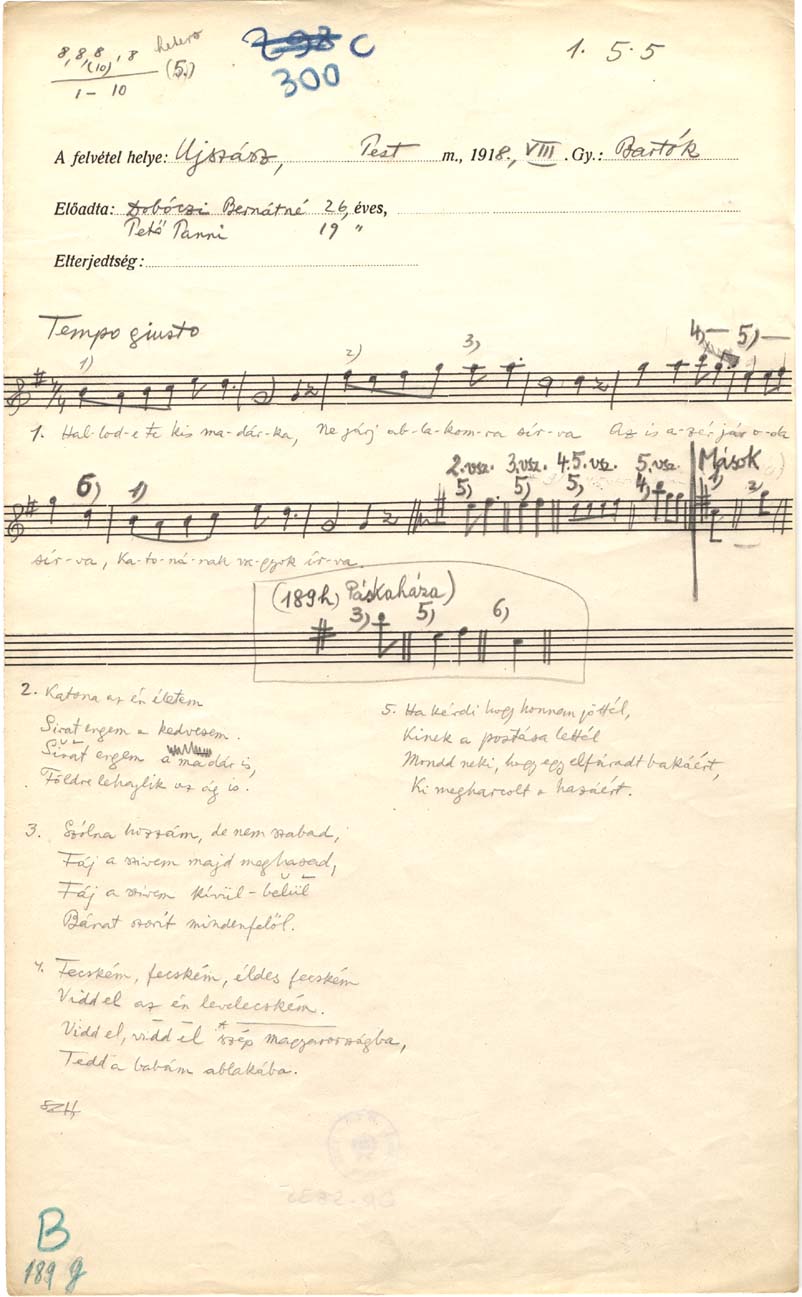 8, 8, 8, 8 hetero
(10) (5.)
1 – 10
298 C
300
1. 5. 5
A felvétel helye: Ujszász, Pest m., 1918., VIII .Gy.: Bartók
Előadta: Dobóczi Bernátné 26, éves,
Pető Panni 19 "
Elterjedtség:
Tempo giusto
1) 2) 3) 4) — 5) —
7/4
1. Hal-lod-e te kis ma-dár-ka, Ne járj ab-la-kom-ra sír-va Az is a-zér jár o-da
6) 1) 2. vsz. 5) 3. vsz. 5) 4. 5. vsz. 5) 5. vsz. 4) Mások 1) 2)
sír-va, Ka-to-ná-nak va-gyok ír-va.
(189h) Páskaháza)
3) 5) 6)
2. Katona az én életem
Sirat engem a kedvesem.
Sirat engem a madár is,
Földre lehajlik az ág is.
3. Szólna hozzám, de nem szabad,
Fáj a szivem majd meghasad,
Fáj a szivem kívül-belül
Bánat szorít mindenfelől.
4. Fecském, fecském, éldes fecském
Vidd el az én levelecském.
Vidd el, vidd el szép magyarországba,
Tedd a babám ablakába.
5. Ha kérdi hogy honnan jöttél,
Kinek a postása lettél
Mondd neki, hogy egy elfáradt bakáért,
Ki megharcolt a hazáért.
SZH,
B
189 g